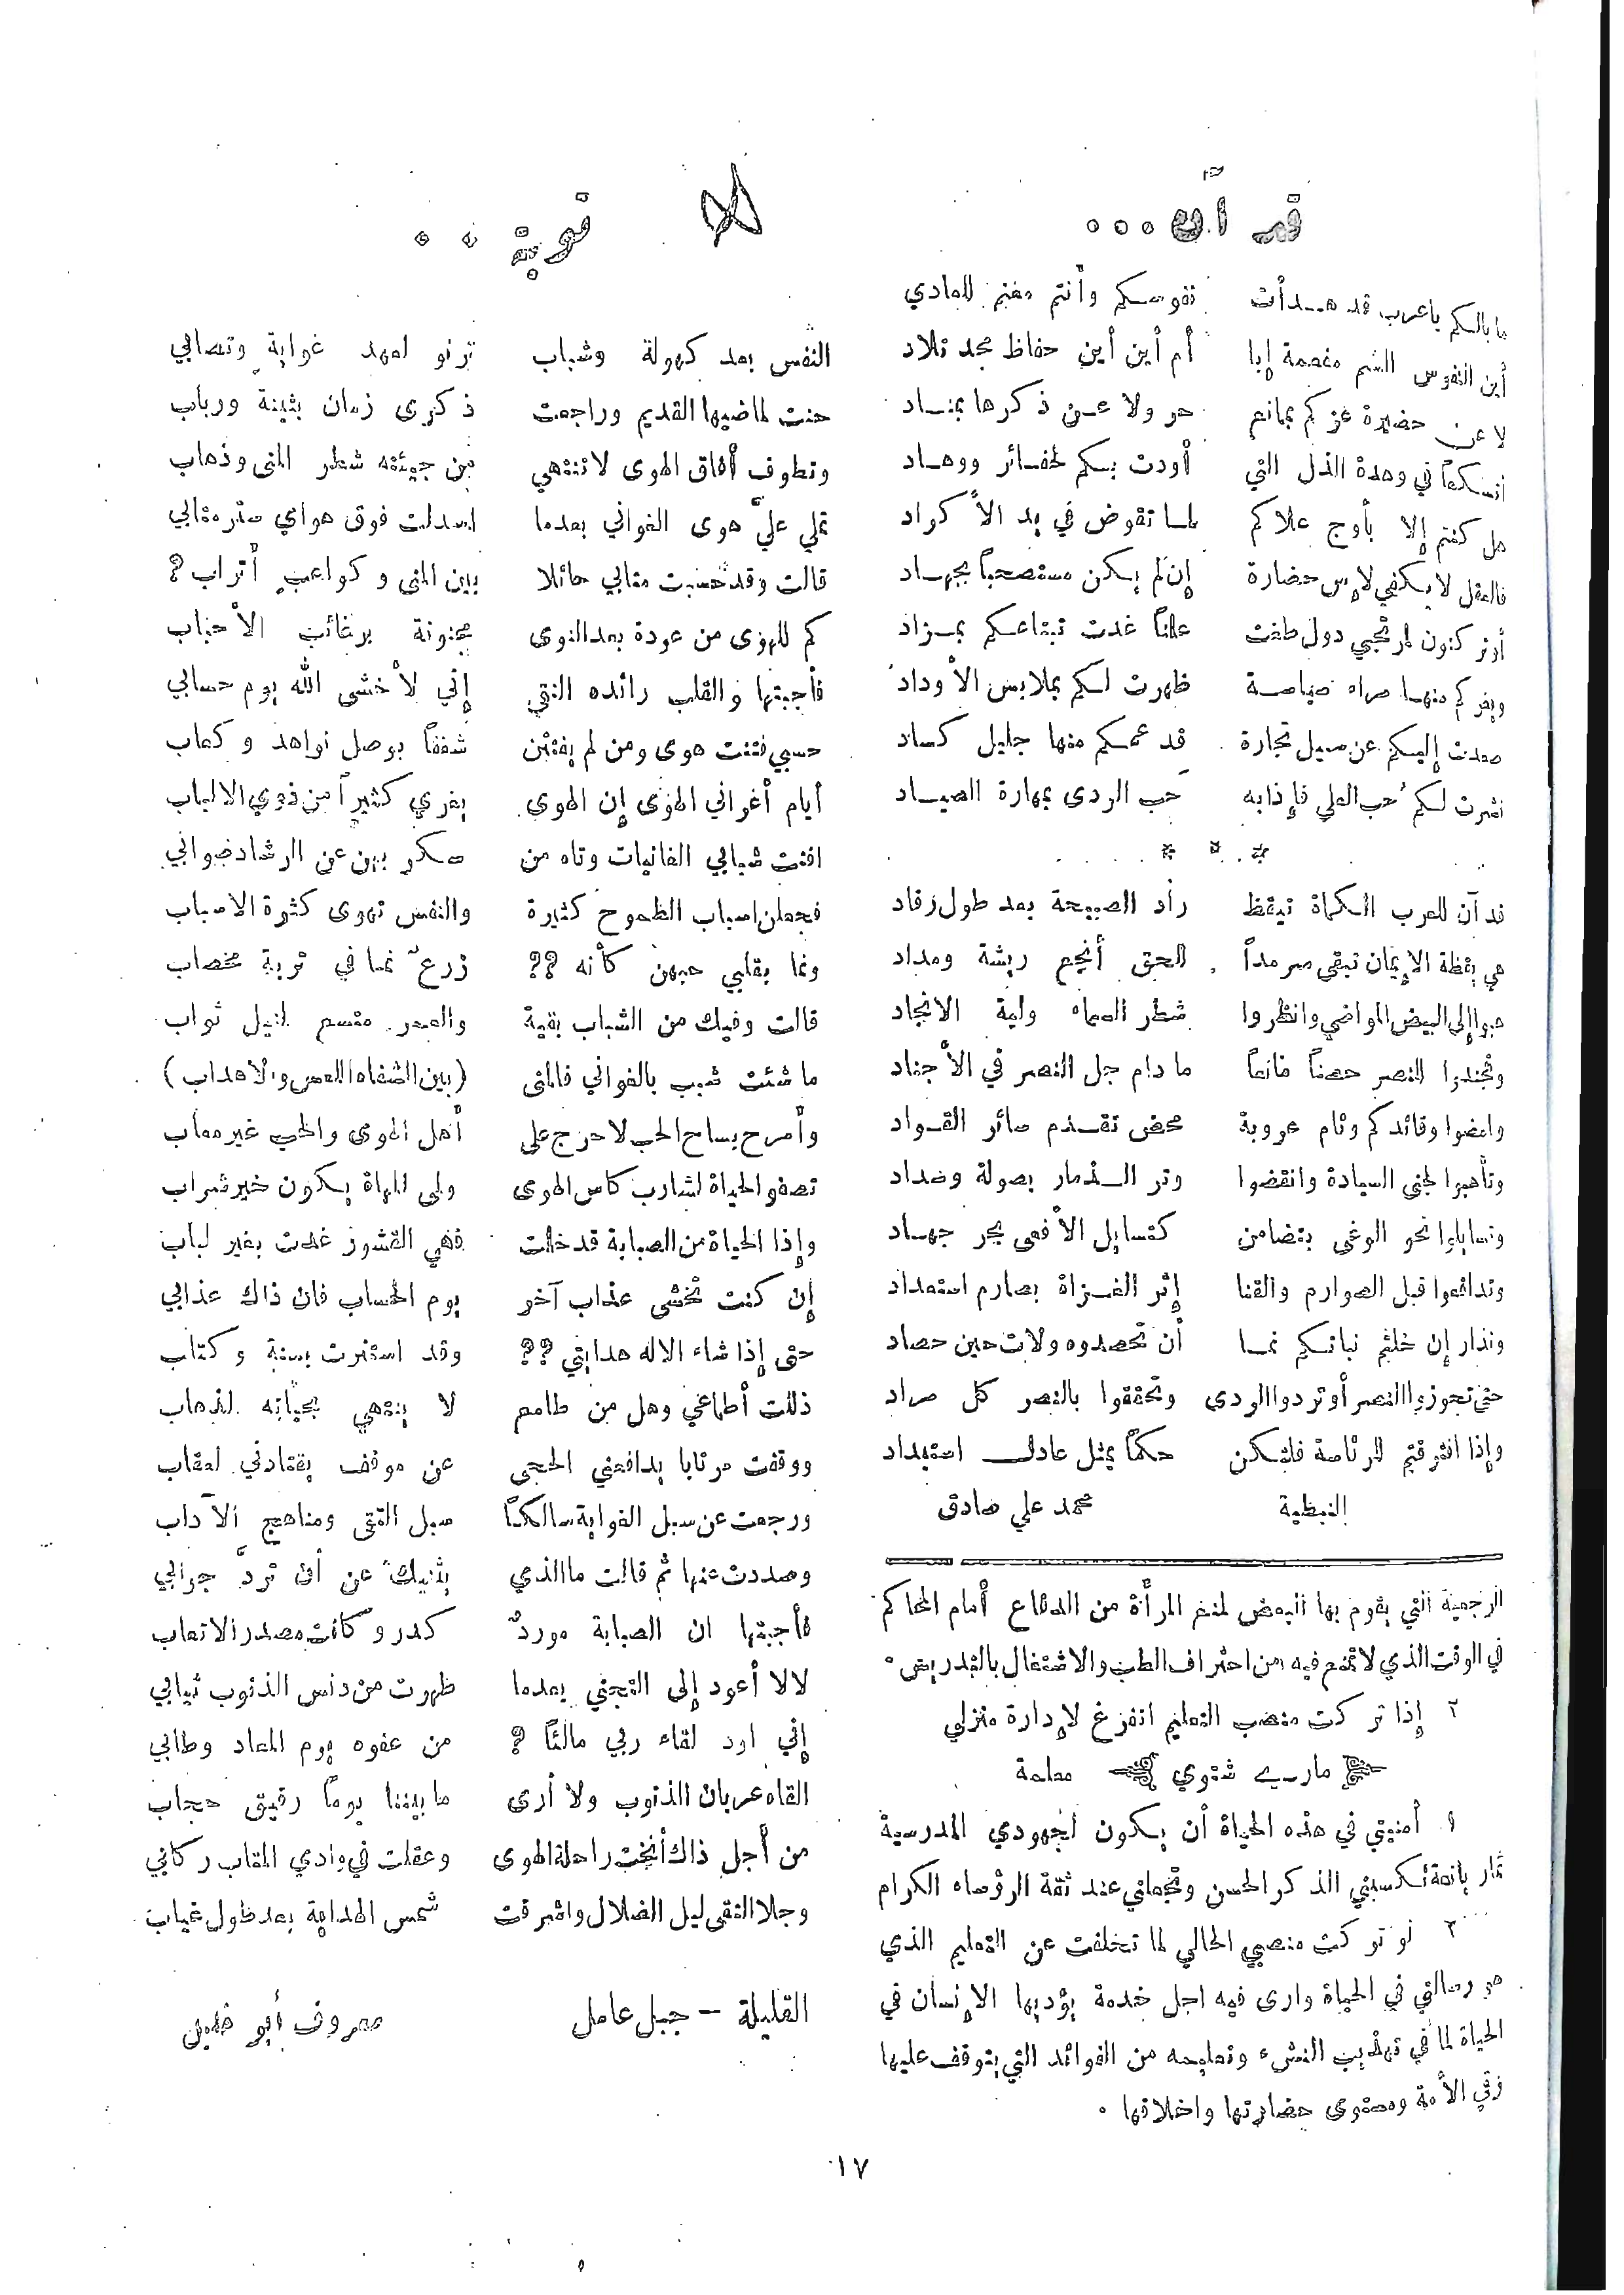 قد آن ...
ما بالكم يا عرب قد هـدأت نفوسكم وأنتم مغنم للعادي
أين النفوس الشم مفعمة إبا أم أين أين حفاظ مجد تلاد
لا عن حضيرة عزكم بمانع حر ولا عن ذكرها بمناد
في وهدة الذل التي أودت بكم لخسائر ووهـاد
هل كنتم إلا بأوج علاكم لمـا تقوض في يد الأكراد
فالعقل لا يكفي لاس حضارة إن لم يكن مستصحباً بجهـاد
دول طغت علناً غدت تبتاعكم بمـزاد
ظهرت لكم بملابس الأوداد
إليكم عن سبيل تجارة قد عمكم منها جليل كساد
نثرت لكم حب العلي فإذا به حب الردى بمهارة الصيـاد
* * *
قد آن للعرب الكماة تيقظ رأد الصبيحة بعد طول رقاد
هي يقظة الإيمان تبقى سرمداً للحق أنجع ريشة ومداد
هبوا إلى البيض المواضي وانظروا شطر السماء ولية الانجاد
وتجندوا للنصر حصناً مانعاً ما دام جل النصر في الأجناد
وامضوا وقائدكم وئام عروبة محض تقـدم سائر القـواد
وتأهبوا لجنى السيادة وانقضوا وتر الـذمار بصولة وضداد
وتسايلوا نحو الوغى بتضامن كتسايل الأفعى بجر جهـاد
وتدافعوا قبل الصوارم والقنا إثر الغـزاة بصارم استعداد
ونذار إن خلتم نباتكم نمـا أن تحصدوه ولات حين حصاد
حتى تحوزوا النصر أو تردوا الردى وتحققوا بالنصر كل مراد
وإذا افترقتم للرئاسة فلتكن حكماً يمثل عادل استبداد
النبطية محمد علي صادق
الرجعية التي يقوم بها البعض لمنع المرأة من الدفاع أمام المحاكم
في الوقت الذي لا تمنع فيه من احتراف الطب والاشتغال بالتدريس .
٢ إذا تركت منصب التعليم اتفرغ لإدارة منزلي
ماري شتوي معلمة
١ أمنيتي في هذه الحياة أن يكون لجهودي المدرسية
ثمار يانعة تكسبني الذكر الحسن وتجعلني عند ثقة الرؤساء الكرام
٢ لو تركت منصبي الحالي لما تخلفت عن التعليم الذي
هو رسالتي في الحياة وارى فيه اجل خدمة يؤديها الإنسان في
الحياة لما في تهذيب النشء وتعليمه من الفوائد التي يتوقف عليها
رقي الأمة ومستوى حضارتها واخلاقها .
لا توبة . .
النفس بعد كهولة وشباب ترنو لعهد غواية وتصابي
حنت لماضيها القديم وراجعت ذكرى زمان بثينة ورباب
وتطوف أفاق الهوى لا تنتهي من جيئة شطر المنى وذهاب
تملي عليّ هوى الغواني بعدما اسدلت فوق هواي ستر متابي
قالت وقد حسبت متابي حائلا بين المنى وكواعب أتراب ؟
كم للهوى من عودة بعد النوى مجنونة برغائب الأحباب
فأجبتها والقلب رائده التقى إني لأخشى الله يوم حسابي
حسبي فتنت هوى ومن لم يفتتن شغفاً بوصل نواهد وكعاب
أيام أغراني الهوى إن الهوى يغري كثيراً من ذوي الالباب
افنت شبابي الغانيات وتاه من سكر بهن عن الرشاد صوابي
فجعلن اسباب الطموح كثيرة والنفس تهوى كثرة الاسباب
ونما بقلبي حبهن كأنه ؟؟ زرعٌ نما في تربة مخصاب
قالت وفيك من الشباب بقية والعمر متسع لنيل ثواب
ما شئت شبب بالغواني فالمنى (بين الشفاه اللعس والأهداب)
وأمرح بساح الحب لا حرج على أهل الهوى والحب غير معاب
تصفو الحياة لشارب كاس الهوى ولمى المهاة يكون خير شراب
وإذا الحياة من الصبابة قد خلت فهي القشور غدت بغير لباب
إن كنت تخشى عذاب آخر يوم الحساب فان ذاك عذابي
حتى إذا شاء الاله هدايتي ؟؟ وقد استنرت بسنة وكتاب
ذللت أطماعي وهل من طامع لا ينتهي بحياته لذهاب
ووقفت مرتابا يدافعني الحجى عن موقف يقتادني لعقاب
ورجعت عن سبل الغواية سالكاً سبل التقى ومناهج الآداب
وصددت عنها ثم قالت ما الذي يثنيك عن أن تردّ جوابي
فأجبتها ان الصبابة موردٌ كدر وكانت مصدر الاتعاب
لا لا أعود إلى التجني بعدما طهرت من دنس الذنوب ثيابي
إني اود لقاء ربي مالئاً ؟ من عفوه يوم المعاد وطابي
القاه عريان الذنوب ولا أرى ما بيننا يوماً رقيق حجاب
من أجل ذاك أنخت راحلة الهوى وعقلت في وادي المتاب ركابي
وجلا التقى ليل الضلال واشرقت شمس الهداية بعد طول غياب
القليلة – جبل عامل معروف أبو خليل
١٧